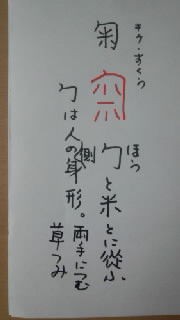 キク・すくう
匊
ほう
勹と米とに從ふ
勹は人の側身形。両手につむ
草つみ